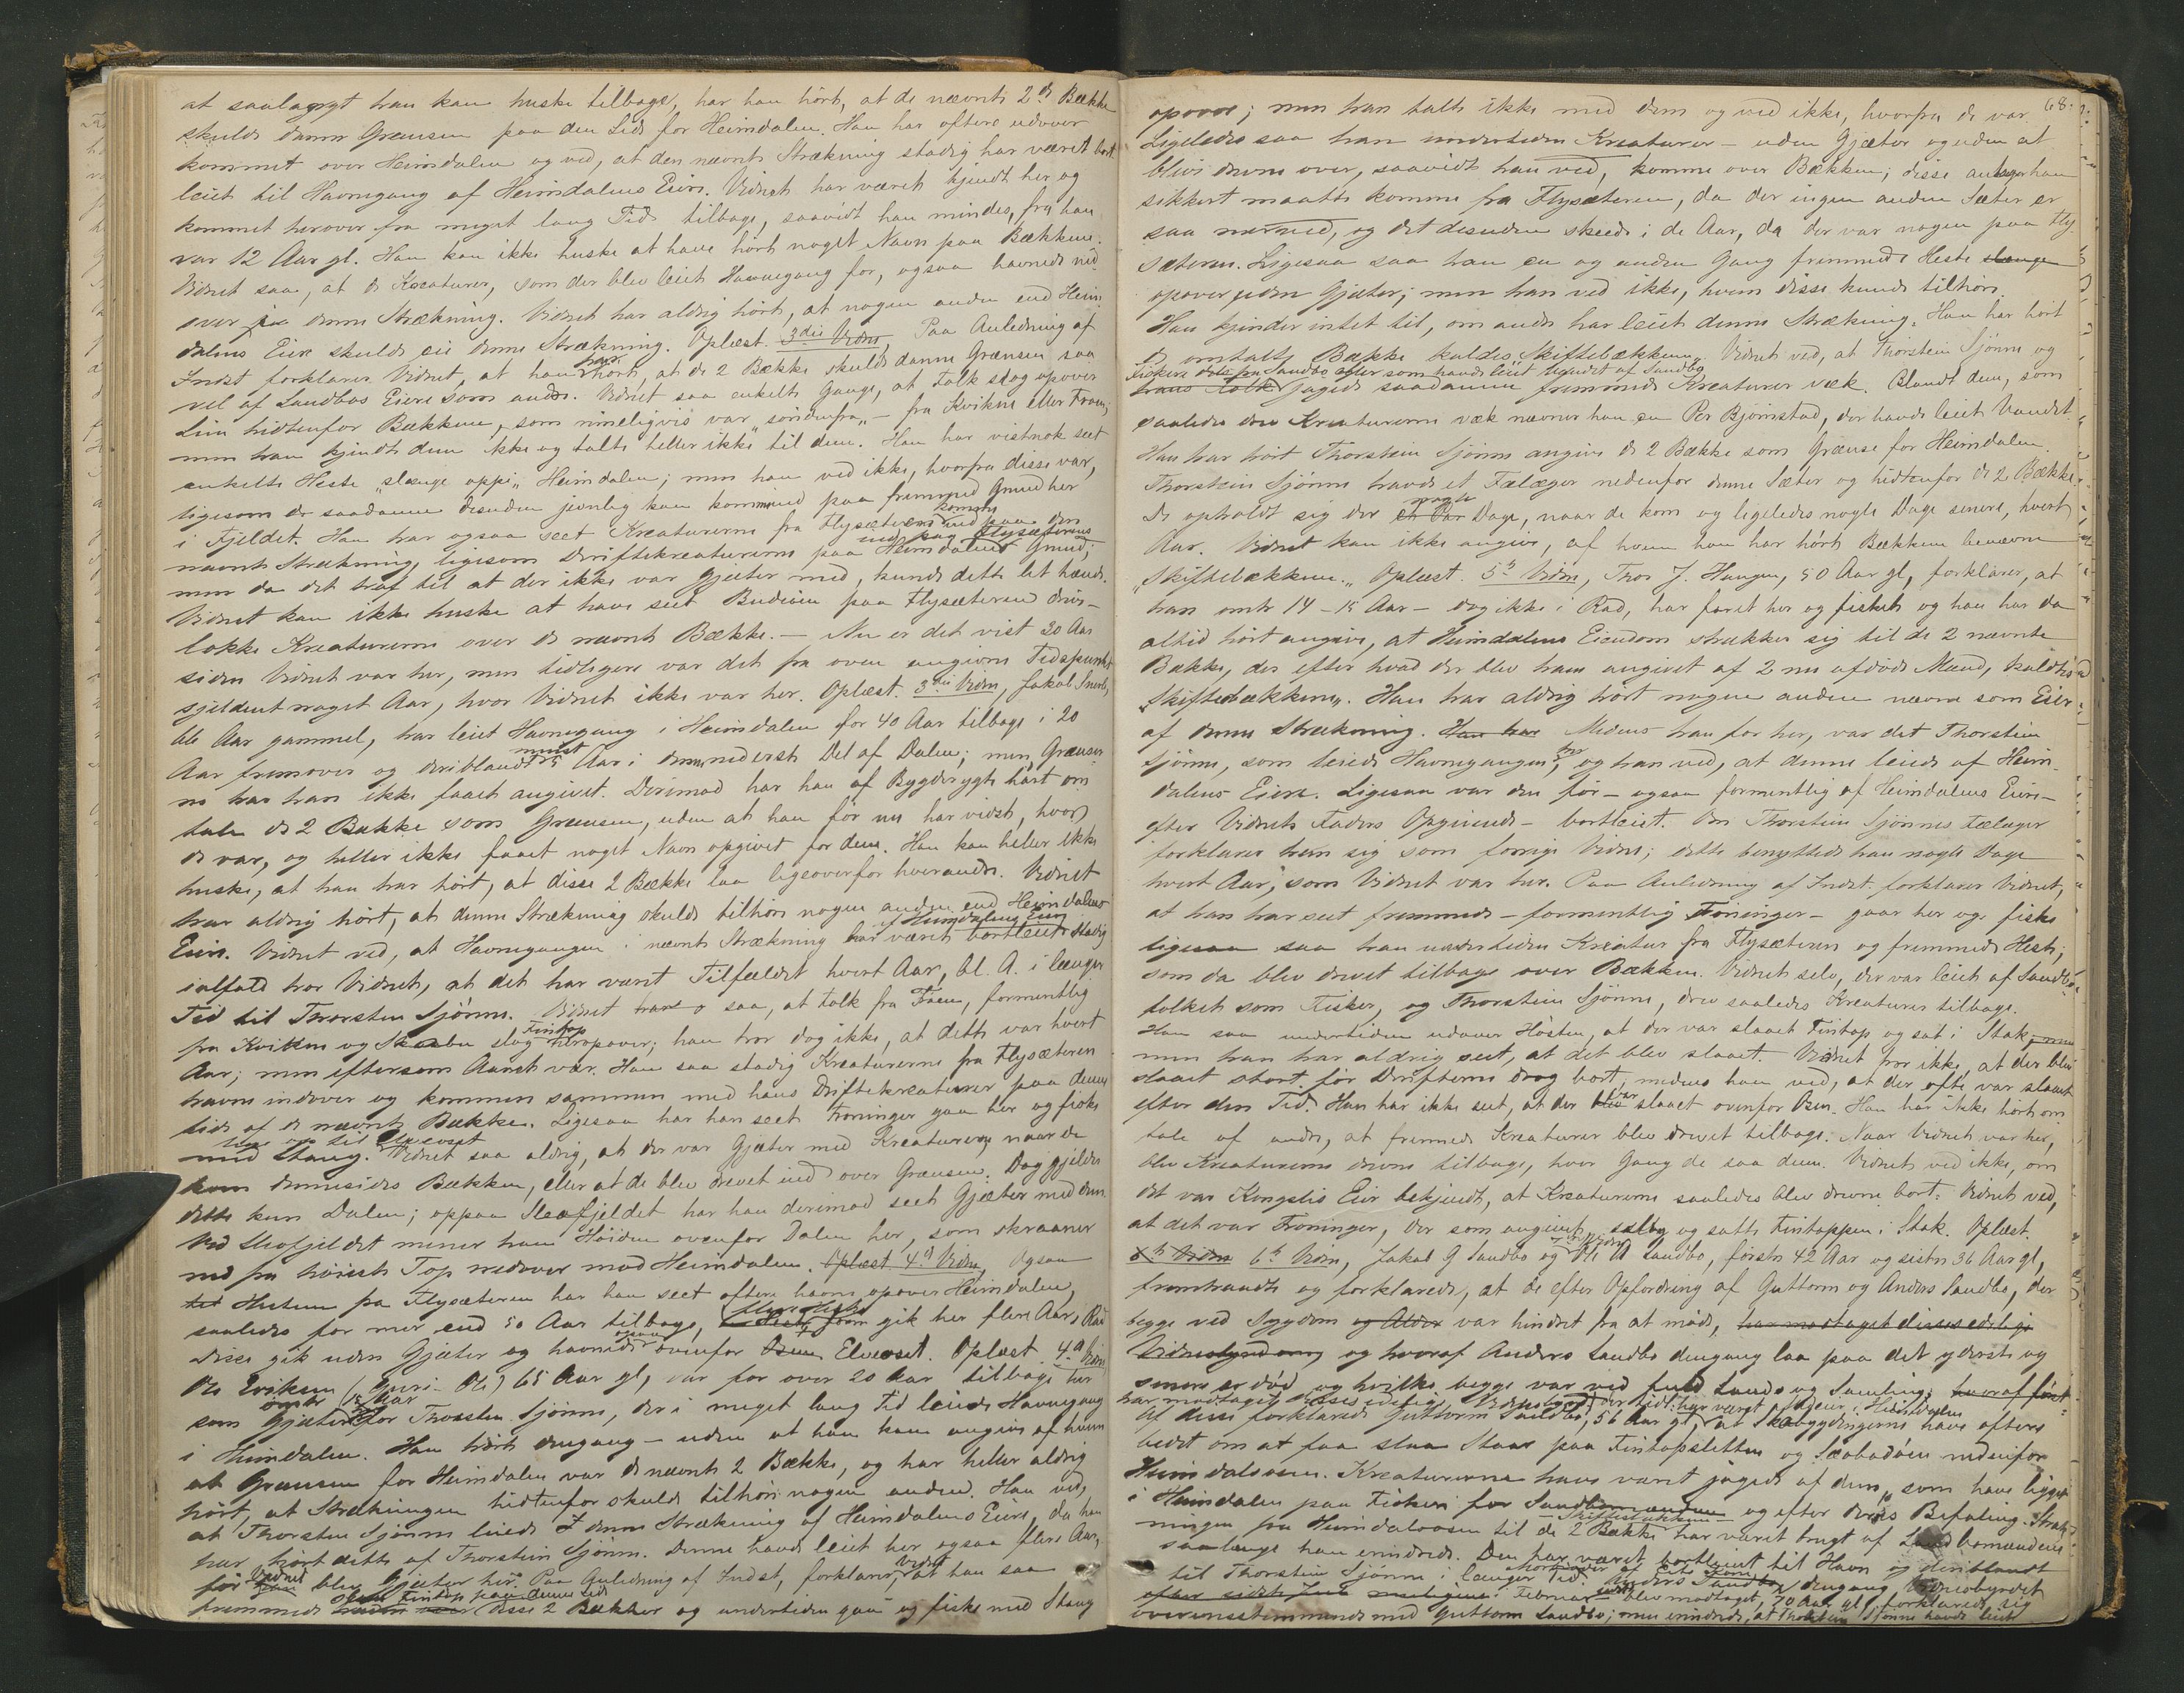 at saalangt han kan huske tilbage, har han hört, at de nævnte 2de Bække
skulde danne Grænsen paa den Side for Heimdalen. Han har oftere udover
kommet over Heimdalen og ved, at den nævnte Strækning stadig har været bort
leiet til Havnegang af Heimdalens Eiere. Vidnet har været kjendt her og
kommet herover fra meget lang Tid tilbage, saavidt han mindes, fra han
var 12 Aar gl. Han kan ikke huske at have hört noget Navn paa Bækkene.
Vidnet saa, at de Kreaturer, som der blev leiet Havnegang for, ogsaa havnede ned
over paa denne Strækning. Vidnet har aldrig hört, at nogen anden end Heim
dalens Eiere skulde eie denne Strækning. Oplæst. 3die Vidne, Paa Anledning af
Indst forklarer Vidnet, at han har hört, at de 2 Bække skulde danne Grænsen saa
vel af Sandbos Eiere som andre. Vidnet saa enkelte Gange, at Folk slog opover
Lien hidtenfor Bækkene, som rimeligvis var "söndenfra" - fra Kvikne eller Fron;
men han kjendte dem ikke og talte heller ikke til dem. Han har vistnok seet
enkelte Heste "slænge oppi" Heimdalen; men han ved ikke, hvorfra disse var,
ligesom de saadanne desuden jevnlig kan komme ind paa fremmed Grund her
i Fjeldet. Han har ogsaa seet Kreaturerne fra Flysæteren komme ind paa den
nævnte Strækning, ligesom Driftekreaturerne ind paa Flysæterens Grund;
men da det traf til at der ikke var Gjæter med, kunde dette let hænde.
Vidnet kan ikke huske at have seet Budeien paa Flysæteren drive-
lokke Kreaturerne over de nævnte Bække. - Nu er det vist 20 Aar
siden Vidnet var her, men tidligere var det fra oven angivne Tidspunkt
sjeldent noget Aar, hvor Vidnet ikke var her. Oplæst. 3die Vidne, Jakob
Aar gammel, har leiet Havnegang i Heimdalen for 40 Aar tilbage i 20
Aar fremover og deriblandt mindst 5 Aar i den nederste Del af Dalen; men Grænser
ne har han ikke faaet angivet. Derimod har han af Bygderygte hört om
tale de 2 Bække som Grænsen, uden at han för nu har vidst, hvor
de var, og heller ikke faaet noget Navn opgivet for dem. Han kan heller ikke
huske, at han har hört, at disse 2 Bække laa ligeoverfor hverandre. Vidnet
har aldrig hört, at denne Strækning skulde tilhöre nogen anden end Heimdalens
Eiere. Vidnet ved, at Havnegangen i nævnte Strækning har været bortleiet af Heimdalens Eiere stadig
ialfald tror Vidnet, at det har været Tilfældet hvert Aar, bl. A. i længere
Tid til Thorsten Sjönne. Vidnet saa, at Folk fra Fron, formentlig
fra Kvikne og Skaabu slog Fintop heropover; han tror dog ikke, at dette var hvert
Aar; men eftersom Aaret var. Han saa stadig Kreaturerne fra Flysæteren
havne indover og kommen sammen med hans Driftekreaturer paa denne
Side af de nævnte Bække. Ligesaa har han seet Froninger gaa her og fiske
med Stang lige op til Elveoset. Vidnet saa aldrig, at der var Gjæter med Kreaturerne, naar de
kom dennesides Bækken, eller at de blev drevet ind over Grænsen. Dog gjelder
dette kun Dalen; oppaa Sleafjeldet har han derimod seet Gjæter med dem.
Ved Sleafjeldet mener han Höiden ovenfor Dalen her, som skraaner
ned fra höieste Top nedover mod Heimdalen. Oplæst 4de Vidne, Ogsaa
Hestene fra Flysæteren har han seet oftere havne opover Heimdalen,
saaledes for mer end 50 Aar tilbage, gik her flere Aar i Rad
Disse gik uden Gjæter og havnede ogsaa ovenfor Elveoset. Oplæst. 4de Vidne
Ole Eriksen 65 Aar gl, var for over 20 Aar tilbage her
som Gjæter omtr 15 Aar for Thorsten Sjönne, der i meget lang Tid leiede Havnegang
i Heimdalen. Han hörte dengang - uden at han kan angive af hvem
at Grænsen for Heimdalen var de nævnte 2 Bække, og har heller aldrig
hört, at Strækningen hidtenfor skulde tilhöre nogen anden. Han ved,
at Thorsten Sjönne leiede denne Strækning af Heimdalens Eiere, da han
har hört dette af Thorstein Sjönne. Denne havde leiet her ogsaa flere Aar,
för Vidnet blev Gjæter her. Paa Anledning af Indst, forklarer Vidnet at han saa
fremmede slaa Fintop paa denne Side disse 2 Bækker og undertiden gaa og fiske med Stang
68.
opover; men han talte ikke med dem og ved ikke, hvorfra de var.
Ligeledes saa han undertiden Kreaturer - uden Gjæter og uden at
blive drevne over, saavidt han ved, komme over Bækken; disse antager han
sikkert maatte komme fra Flysæteren, da der ingen anden Sæter er
saa nær ved, og det desuden skeede i de Aar, da der var nogen paa Fly-
sæteren. Ligesaa saa han en og anden Gang fremmede Heste slænge
opover uden Gjæter; men han ved ikke, hvem disse kunde tilhöre.
Han kjender intet til, om andre har leiet denne Strækning. Han har hört
de omtalte Bække kaldes "Skiftebækkene". Vidnet ved, at Thorstein Sjönne og
Fiskere dels fra Sandbo eller som havde leiet Vandet af Sandbo
hans Folk jagede saadanne fremmede Kreaturer væk. Blandt dem, som
saaledes drev Kreaturerne væk nævner han en Per Björnstad, der havde leiet Vandet.
Han har hört Thorstein Sjönne angive de 2 Bække som Grænse for Heimdalen.
Thorstein Sjönne havde et Fælæger nedenfor denne Sæter og hidtenfor de 2 Bække.
De opholdt sig der nogle Dage, naar de kom og ligeledes nogle Dage senere, hvert
Aar. Vidnet kan ikke angive, af hvem han har hört Bækkene benævne
"Skiftebækkene". Oplæst. 5te Vidne, Thor J. Haugen, 50 Aar gl, forklarer, at
han omtr 14-15 Aar - dog ikke i Rad, har faret her og fisket og han har da
altid hört angive, at Heimdalens Eiendom strækker sig til de 2 nævnte
Bække, der efter hvad der blev ham angivet af 2 nu afdöde Mænd, kaldtes
"Skiftebækkene". Han har aldrig hört nogen anden nævne som Eier
af denne Strækning. Han har Medens han for her, var det Thorstein
Sjönne, som leiede Havnegangen her, og han ved, at denne leiede af Heim-
dalens Eiere. Ligesaa var den för - ogsaa formentlig af Heimdalens Eiere -
efter Vidnets Faders Opgivende - bortleiet. Om Thorstein Sjönnes Fælæger
forklarer han sig som forrige Vidne; dette benyttede han nogle Dage
hvert Aar, som Vidnet var her. Paa Anledning af Indst. forklarer Vidnet,
at han har seet fremmede - formentlig Froninger - gaar her og fiske
ligesaa saa han undertiden Kreatur fra Flysæteren og fremmede Heste,
som da blev drevet tilbage over Bækken. Vidnet selv, der var leiet af Sandbo-
folket som Fisker, og Thorstein Sjönne, drev saaledes Kreaturer tilbage.
Han saa undertiden udover Hösten, at der var slaaet Fintop og sat i Stak,
men han har aldrig seet, at det blev slaaet. Vidnet tror ikke, at der blev
slaaet stort för Drifterne drog bort, medens han ved, at der ofte var slaaet
efter den Tid. Han har ikke seet, at der var slaaet ovenfor Osen. Han har ikke hört om
tale af andre, at fremmede Kreaturer blev drevet tilbage. Naar Vidnet var her,
blev Kreaturerne drevne tilbage, hver Gang de saa dem. Vidnet ved ikke, om
det var Kongslis Eier bekjendt, at Kreaturerne saaledes blev drevne bort. Vidnet ved,
at det var Froninger, der som angivet slog og satte Fintoppen i Stak. Oplæst.
6te Vidne, Jakob G Sandbo og 7de Vidne Ole A Sandbo, förste 42 Aar og sidste 36 Aar gl,
fremstaaedt og forklarede, at de efter Opfordring af Guttorm og Anders Sandbo, der
begge ved Sygdom og Alder var hindret fra at möde, har modtaget disses edelige
Vidnesbyrd og hvoraf Anders Sandbo dengang laa paa det yderste og
senere er död og hvilke begge var ved fuld Sands og Samling,
har modtaget disses edelige Vidnesbyrd
Af disse forklarede Guttorm Sandbo, 56 Aar gl, at Skabygdingerne have oftere
bedet om at faa slaa Staar paa Fintopsletten og Sæbodöen nedenfor
Heimdalsosen. Kreaturerne have været jagede af dem, som have ligget
i Heimdalen paa Fiskeri for Sandbomændene og efter deres Befaling. Stræk-
ningen fra Heimdalsosen til de 2 Bække - Skiftebækkene - har været brugt af Sandbomændene
saalænge han erindrede. Den har været bortleiet til Havn og deriblandt
til Thorstein Sjönne i længer Tid. Anders Sandbo, dengang Vidnesbyrdet
blev modtaget, 70 Aar gl, forklarede sig
overensstemmende med Guttorm Sandbo; men erindrede, at Thorstein Sjönne havde leiet